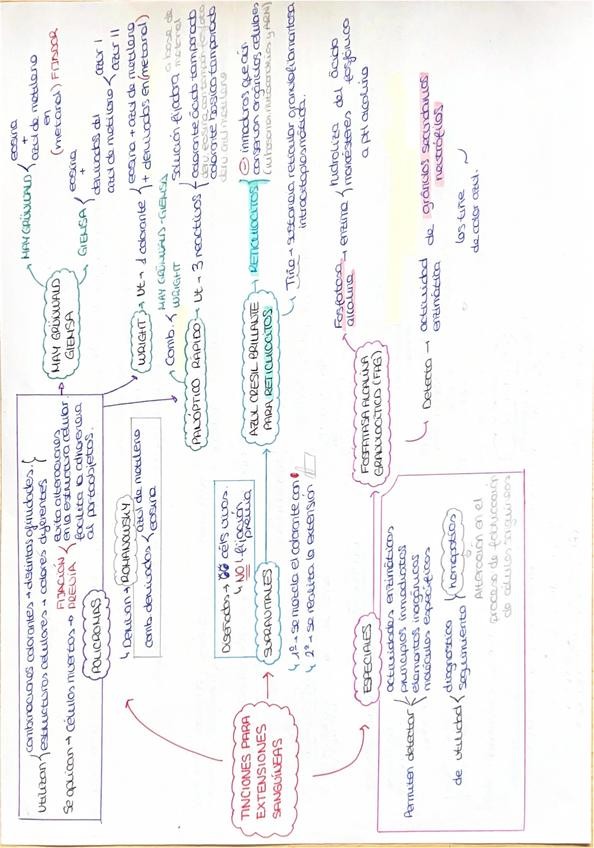 TINCIONES PARA
EXTENSIONES
SANGUÍNEAS
POLICROMAS
Utilizan
combinaciones colorantes → distintas afinidades.
estructuras celulares → colores diferentes
Se aplican → células muertas → FIJACIÓN
PREVIA
Evita alteraciones
en la estructura celular.
facilita la adherencia
al portaobjetos.
↳ Derivan → ROMANOWSKY
comb. derivados
azul de metileno
eosina
MAY GRÜNWALD
GIEMSA
MAY GRÜNWALD
eosina
+
azul de metileno
en
(metanol) FIJADOR
GIEMSA
eosina
+
derivados del
azul de metileno
azur I
azur II
WRIGHT → Ut → 1 colorante
eosina + azul de metileno
+ derivados en (metanol)
Comb.
MAY GRÜNWALD-GIEMSA
WRIGHT
PANÓPTICO RÁPIDO → Ut → 3 reactivos
Solución fijadora a base de
metanol
colorante ácido tamponado
colorante básico tamponado
SUPRAVITALES
Diseñados → céls vivas.
↳ NO! fijación
previa
↳ 1º → se mezcla el colorante con
↳ 2º → se realiza la extensión
AZUL CRESIL BRILLANTE
PARA RETICULOCITOS
→ RETICULOCITOS
inmaduros que aún
conservan orgánulos celulares
(ribosomas, mitocondrias y ARN)
↳ Tiñe → sustancia reticular granulofilamentosa
intracitoplasmática.
ESPECIALES
Permiten detectar
actividades enzimáticas
principios inmediatos
elementos inorgánicos
moléculas específicas
de utilidad
diagnóstico
seguimiento
hemopatías
Alteración en el
proceso de fabricación
de células sanguíneas
FOSFATASA ALCALINA
GRANULOCÍTICA (FAG)
Fosfatasa
alcalina → enzima
hidroliza del ácido
monoésteres fosfórico
a pH alcalino
Detecta → actividad
enzimática
de gránulos secundarios
neutrófilos
los tiñe
de color azul.